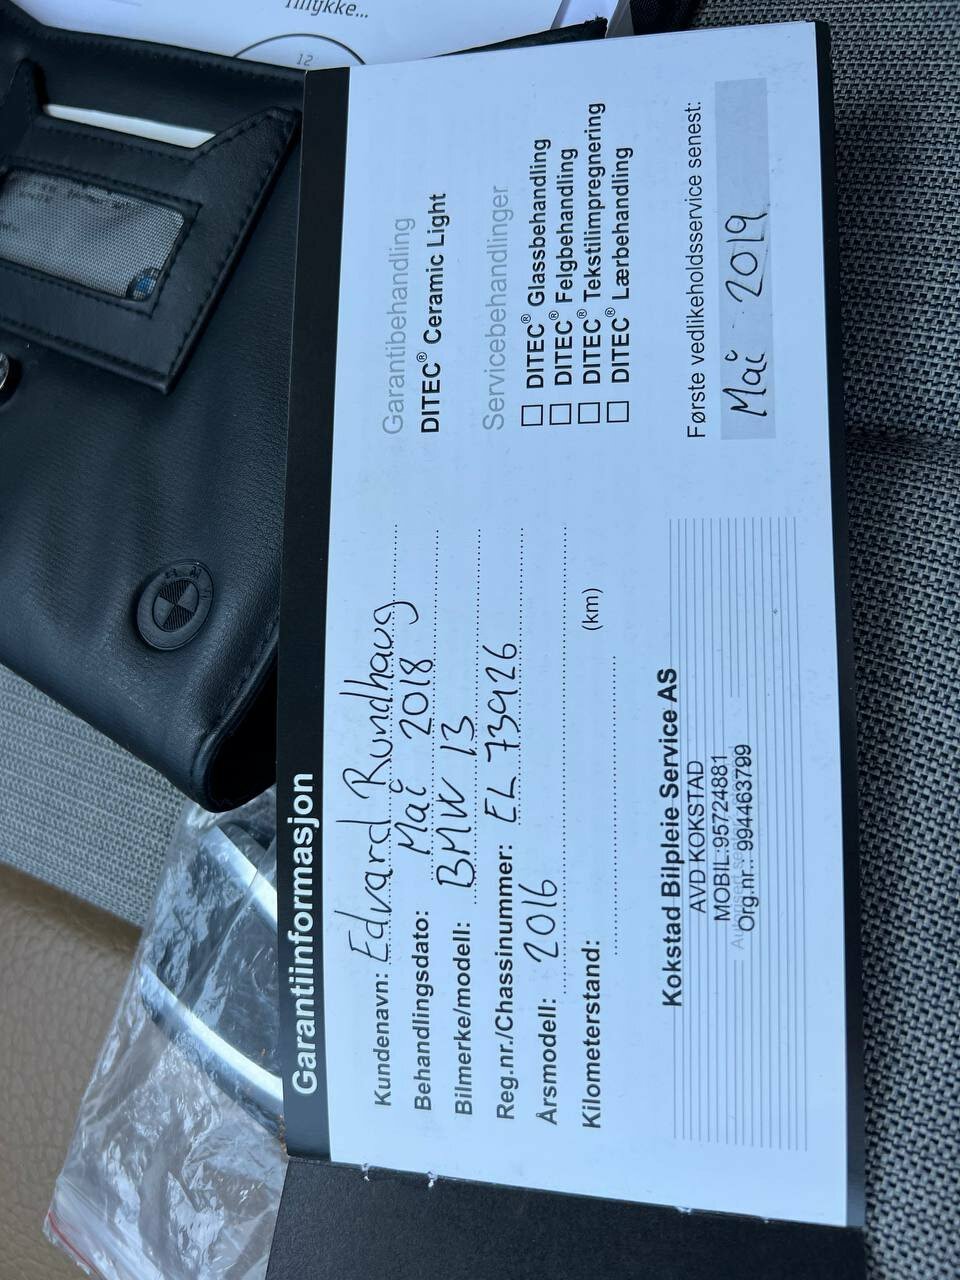 Tillykke...
12
Garantiinformasjon
Kundenavn: Edvard Rundhaug
Behandlingsdato: Mai 2018
Bilmerke/modell: BMW I3
Reg.nr./Chassinummer: EL 73926
Årsmodell: 2016
Kilometerstand: (km)
Kokstad Bilpleie Service AS
AVD KOKSTAD
MOBIL:95724881
Org.nr.: 994463799
Garantibehandling
DITEC® Ceramic Light
Servicebehandlinger
☐ DITEC® Glassbehandling
☐ DITEC® Felgbehandling
☐ DITEC® Tekstilimpregnering
☐ DITEC® Lærbehandling
Første vedlikeholdsservice senest:
Mai 2019